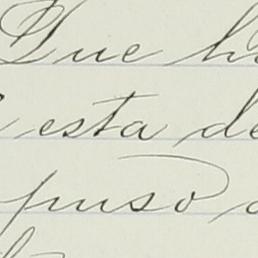 Que h
esta de
puso